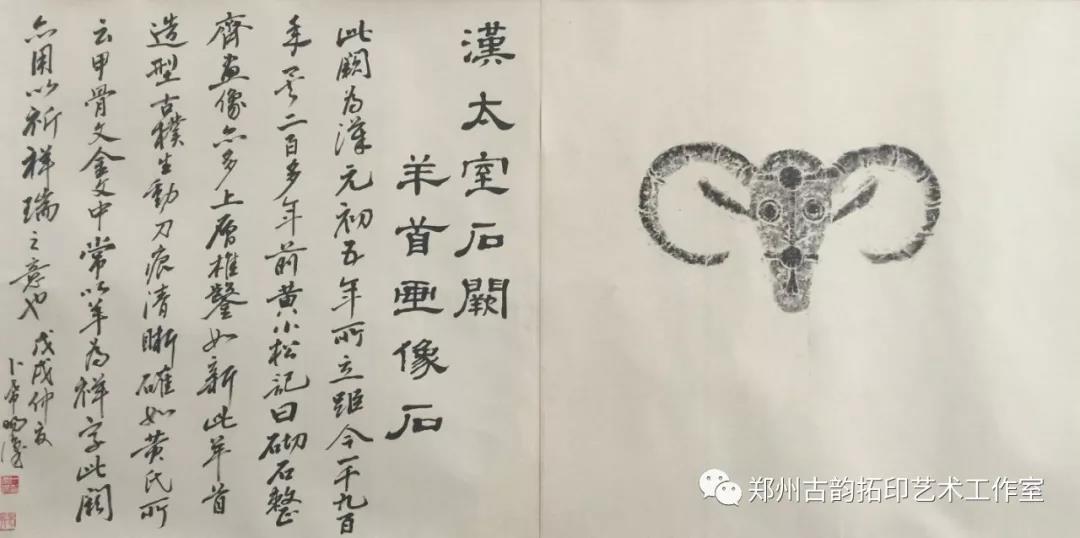 漢太室石闕
羊首画像石
此闕為漢元初五年所立距今一千九百
年矣二百多年前黄小松記曰砌石整
齊畫像亦多上層椎鑿如新此羊首
造型古樸生動刀痕清晰確如黄氏所
云甲骨文金文中常以羊為祥字此闕
亦用以祈祥瑞之意也
戊戌仲夏
卜希暘識
郑州古韵拓印艺术工作室